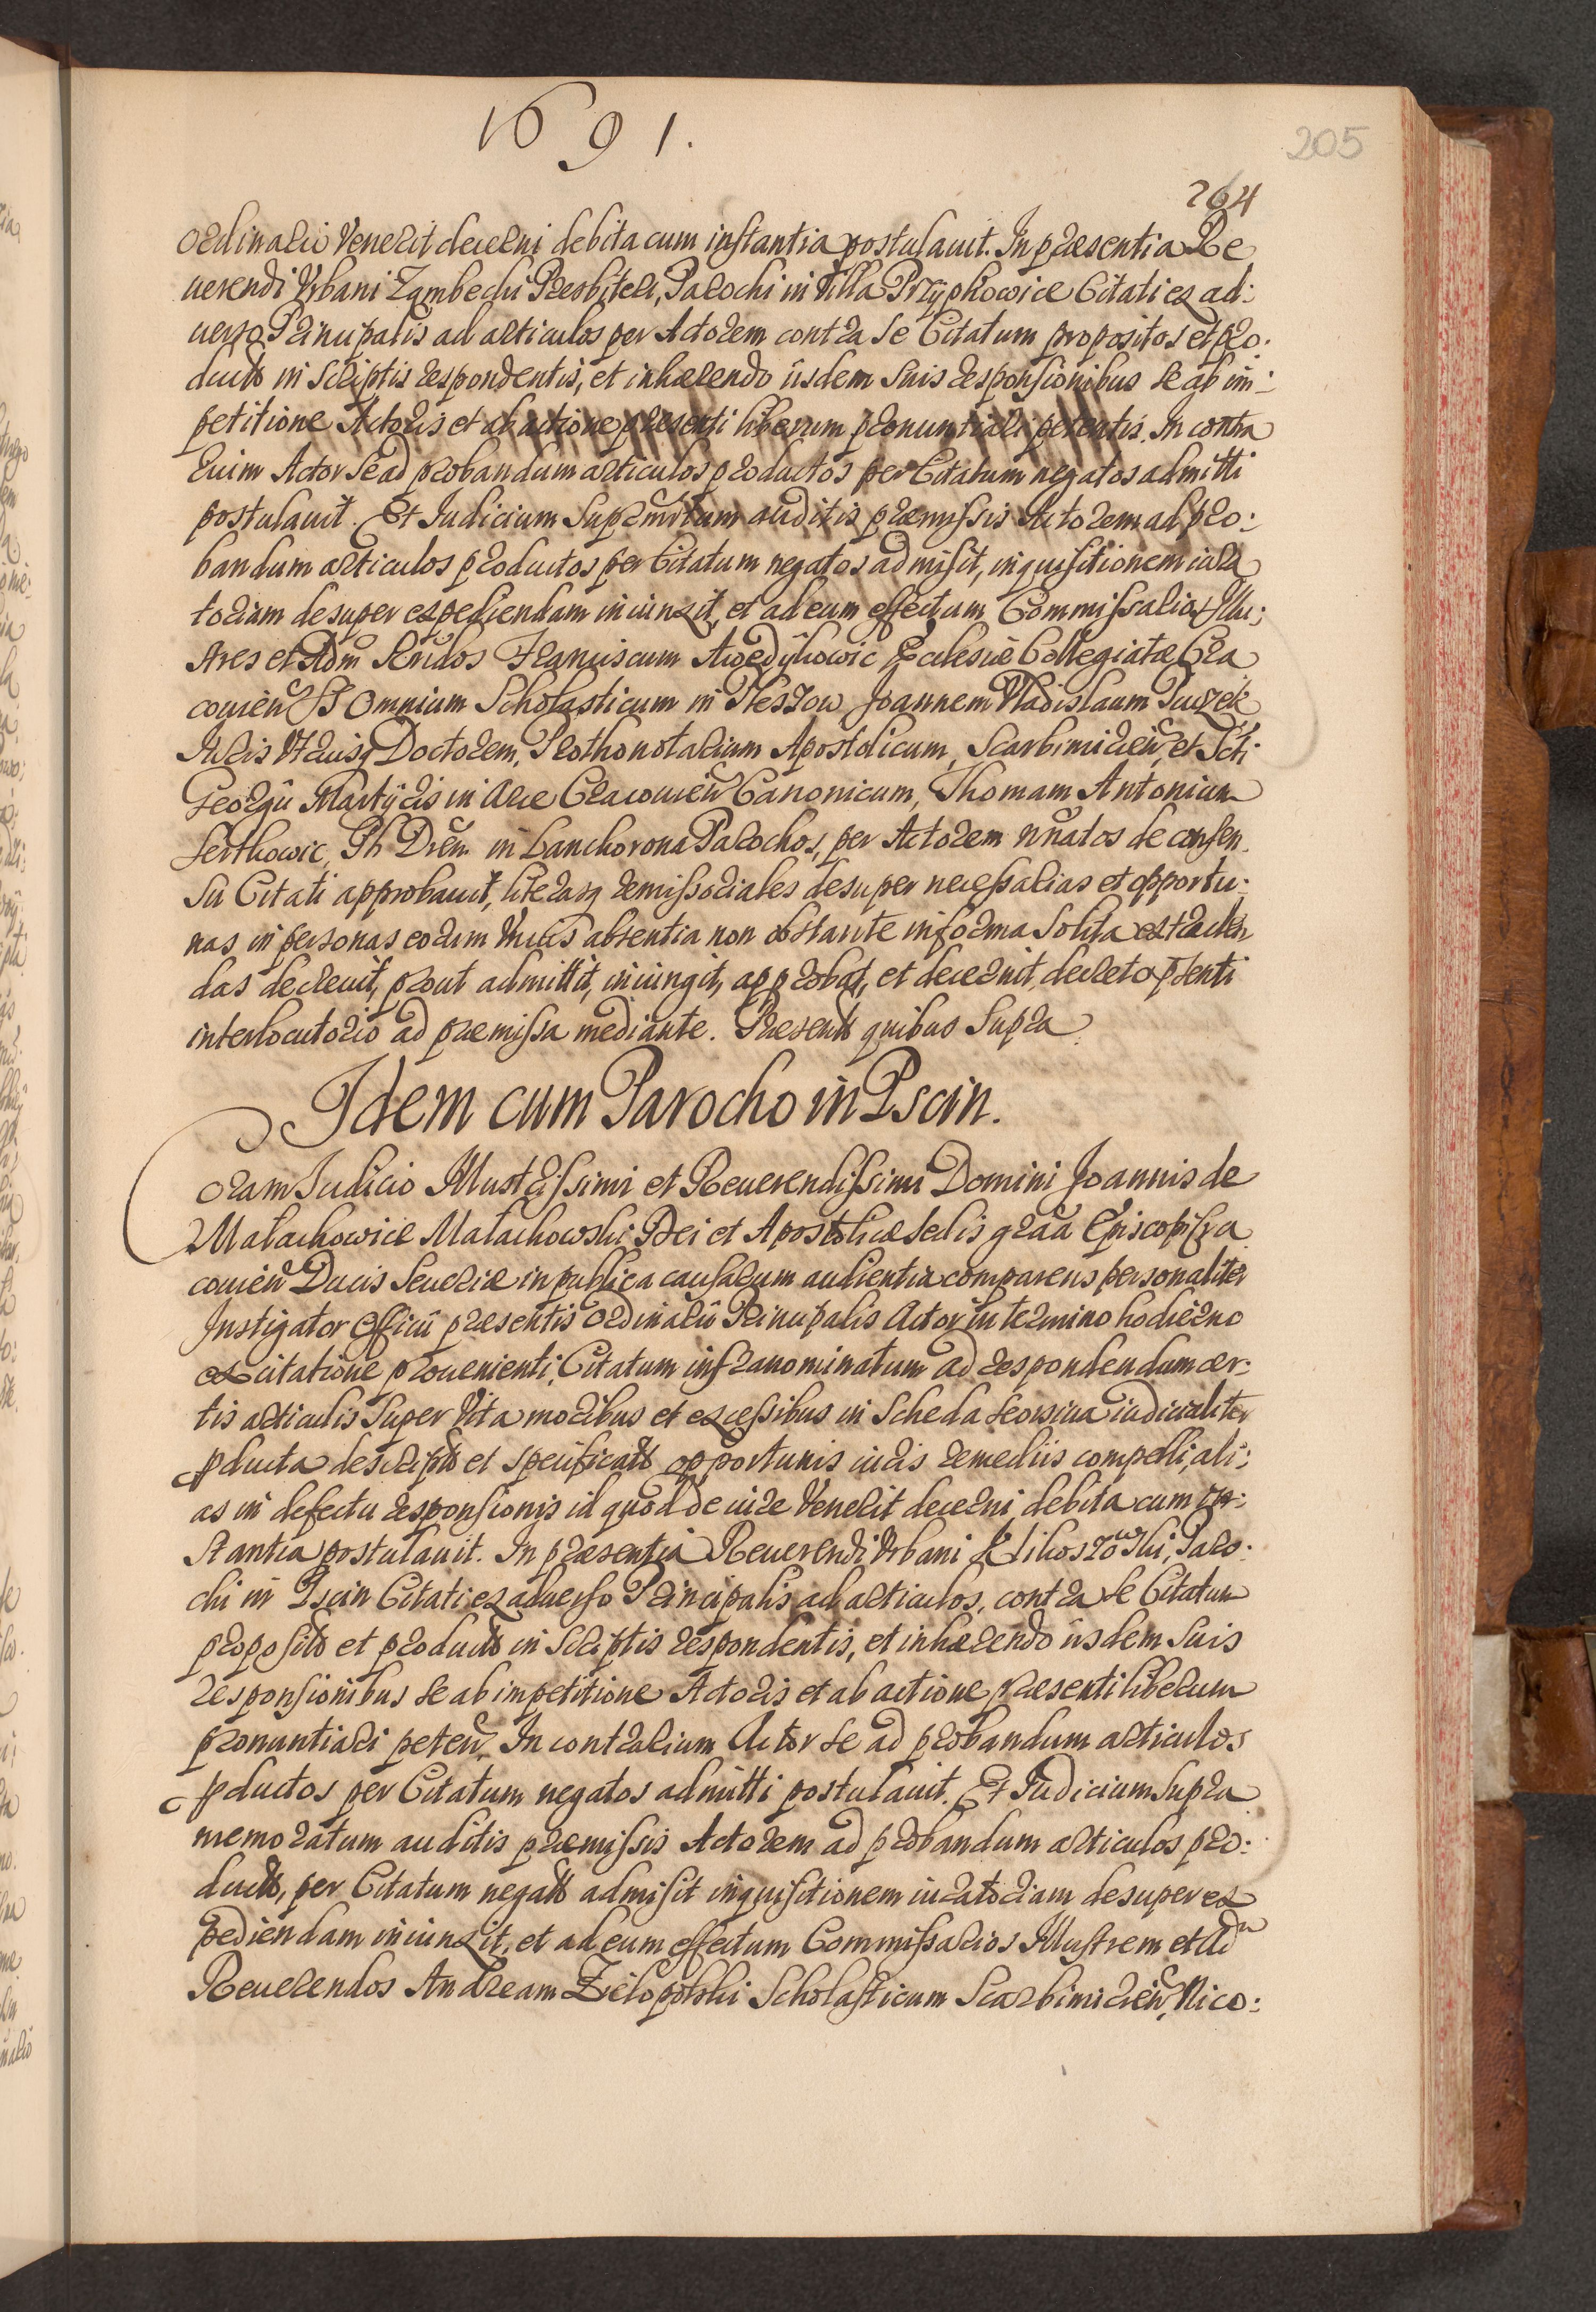 1691.
205
264
ordinario Venerit decerni debita cum instantia postulauit. In praesentia Re
uerendi Vrbani Zambechi Presbiteri, Parochi in Villa Przÿtkowice Citati ex ad:
uerso Principalis ad articulos per Actorem contra se Citatum propositos et pro:
ductos in scriptis respondentis, et inhaerendo iisdem suis responsionibus se ab im:
petitione Actoris et ab actione praesenti liberum pronuntiari petentis. In contra
rium Actor se ad probandum articulos productos per Citatum negatos admitti
postulauit. Et Iudicium supramtum auditis praemissis Actorem ad pro:
bandum articulos productos per Citatum negatos admisit, inquisitionem iura
toriam desuper expediendam iniunxit, et ad eum effectum Commissarios Illu:
stres et Adm Rndos Franciscum Ecclesiae Collegiatae Cra
couien SS Omnium Scholasticum in Joannem Vladislaum
Juris Vtriusq Doctorem, Prothonotarium Apostolicum, Scarbimirien, et Scti
Georgii Martÿris in Arce Cracouien Canonicum, Thomam Antonium
Ph Dren in Lanckorona Parochos, per Actorem nnatos de consen
su Citati approbauit, literasq remissoriales desuper necessarias et opportu:
nas in personas eorum absentia non obstante in forma solita extraden
das decreuit, prout admittit, iniungit, approbat, et decernit, decreto psenti
interlocutorio ad praemissa mediante. Praesentibus quibus supra
Idem cum Parocho in Pscin.
Coram Iudicio Illustrissimi et Reuerendissimi Domini Joannis de
Malachowice Malachowski Dei et Apostolicae Sedis graa Episcopi Cra
couien Ducis Seueriae in publica causarum audientia comparens personaliter
Instigator Officii praesentis Ordinarii Principalis Actor in termino hodierno
ex citatione prouenienti, Citatum infranominatum ad respondendum cer:
tis articulis super Vita moribus et excessibus in Scheda seorsiua iudicialiter
pducta descriptis et specificatis opportunis iuris remediis compelli, ali:
as in defectu responsionis id quod de iure Venerit decerni, debita cum in:
stantia postulauit. In praesentia Reuerendi Vrbani Paro:
chi in Pscin Citati ex aduerso Principalis ad articulos, contra se Citatum
propositos et productos in scriptis respondentis, et inhaerendo iisdem suis
responsionibus se ab impetitione Actoris et ab actione praesenti liberum
pronuntiari peten. In contrarium Actor se ad probandum articulos
pductos per Citatum negatos admitti postulauit. Et Iudicium supra
memoratum auditis praemissis Actorem ad probandum articulos pro:
ductos, per Citatum negatos admisit inquisitionem iuratoriam desuper ex
pediendam iniunxit, et ad eum effectum Commissarios Illustrem et Adm
Reuerendos Andream Zielopolski Scholasticum Scarbimirien, Nico: